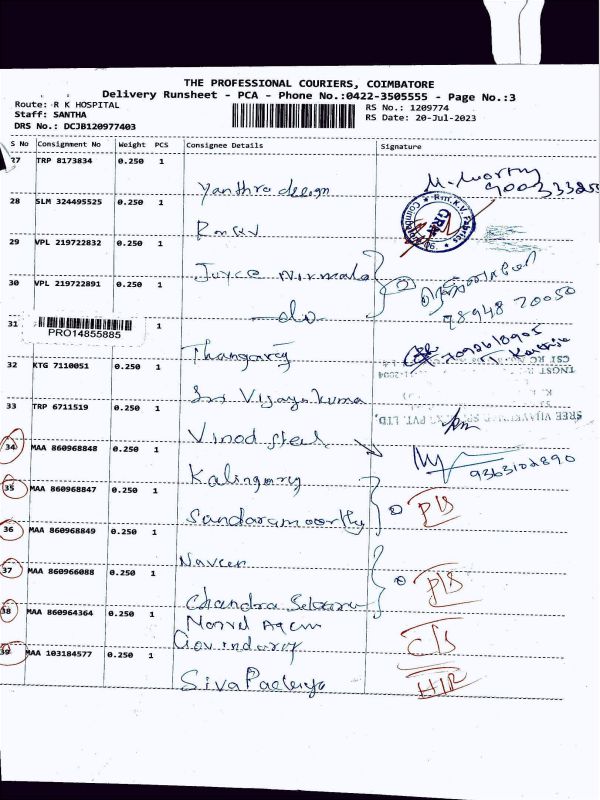 THE PROFESSIONAL COURIERS, COIMBATORE
Delivery Runsheet - PCA - Phone No.:0422-3505555 - Page No.:3
Route: R K HOSPITAL
Staff: SANTHA
DRS No.: DCJB120977403
RS No.: 1209774
RS Date: 20-Jul-2023
S No Consignment No Weight PCS Consignee Details Signature
27 TRP 8173834 0.250 1
Yanthra design
28 SLM 324495525 0.250 1
RmKV
29 VPL 219722832 0.250 1
Joyce Nirmala
30 VPL 219722891 0.250 1
-do-
31 PRO14855885 1
Thangaraj
32 KTG 7110051 0.250 1
Sri Vijayakumar
33 TRP 6711519 0.250 1
Vinod steel
34 MAA 860968848 0.250 1
Kalingaraj
9363102890
35 MAA 860968847 0.250 1
Sandaramoorthy
P/S
36 MAA 860968849 0.250 1
Naveen
37 MAA 860966088 0.250 1
Chandra
P/S
38 MAA 860964364 0.250 1
Govindaraj
C/S
39 MAA 103184577 0.250 1
Siva